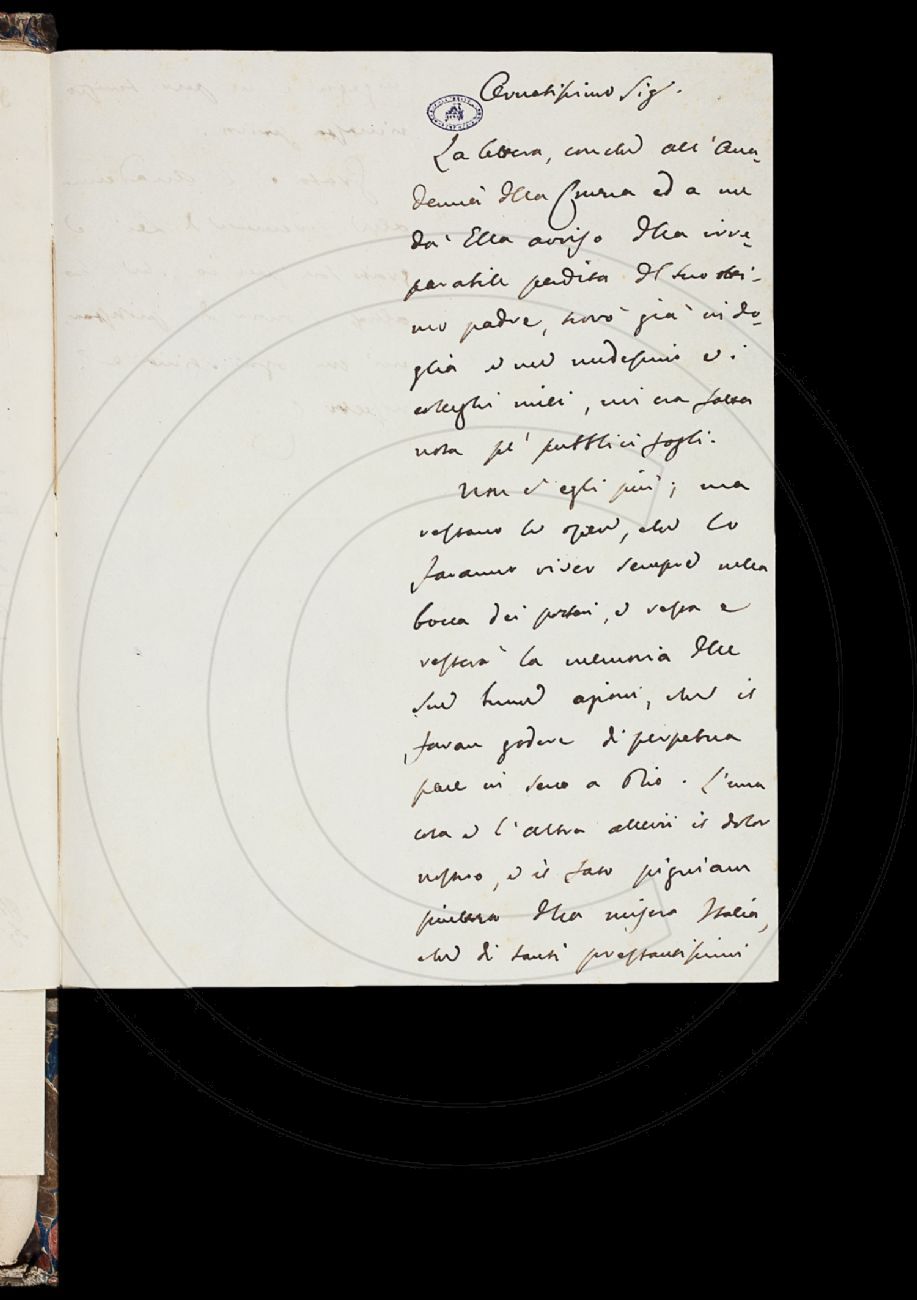 Ornatissimo Sig.
La lettera, con che all'Acca-
demia della Crusca ed a me
dà Ella avviso della irre-
parabile perdita del suo
mo padre, trovò già in do-
glia e me medesimo e i
colleghi miei, mi era fatta
nota pe' pubblici fogli.
Non è egli più; ma
restano le opere, che lo
faranno viver sempre nella
bocca dei posteri, e resta e
resterà la memoria delle
sue buone azioni, che il
faran godere di perpetua
pace in seno a Dio. L'una
cosa e l'altra allevii il dolor
nostro, e il fato pigniam
della misera Italia,
che di tanti prestantissimi